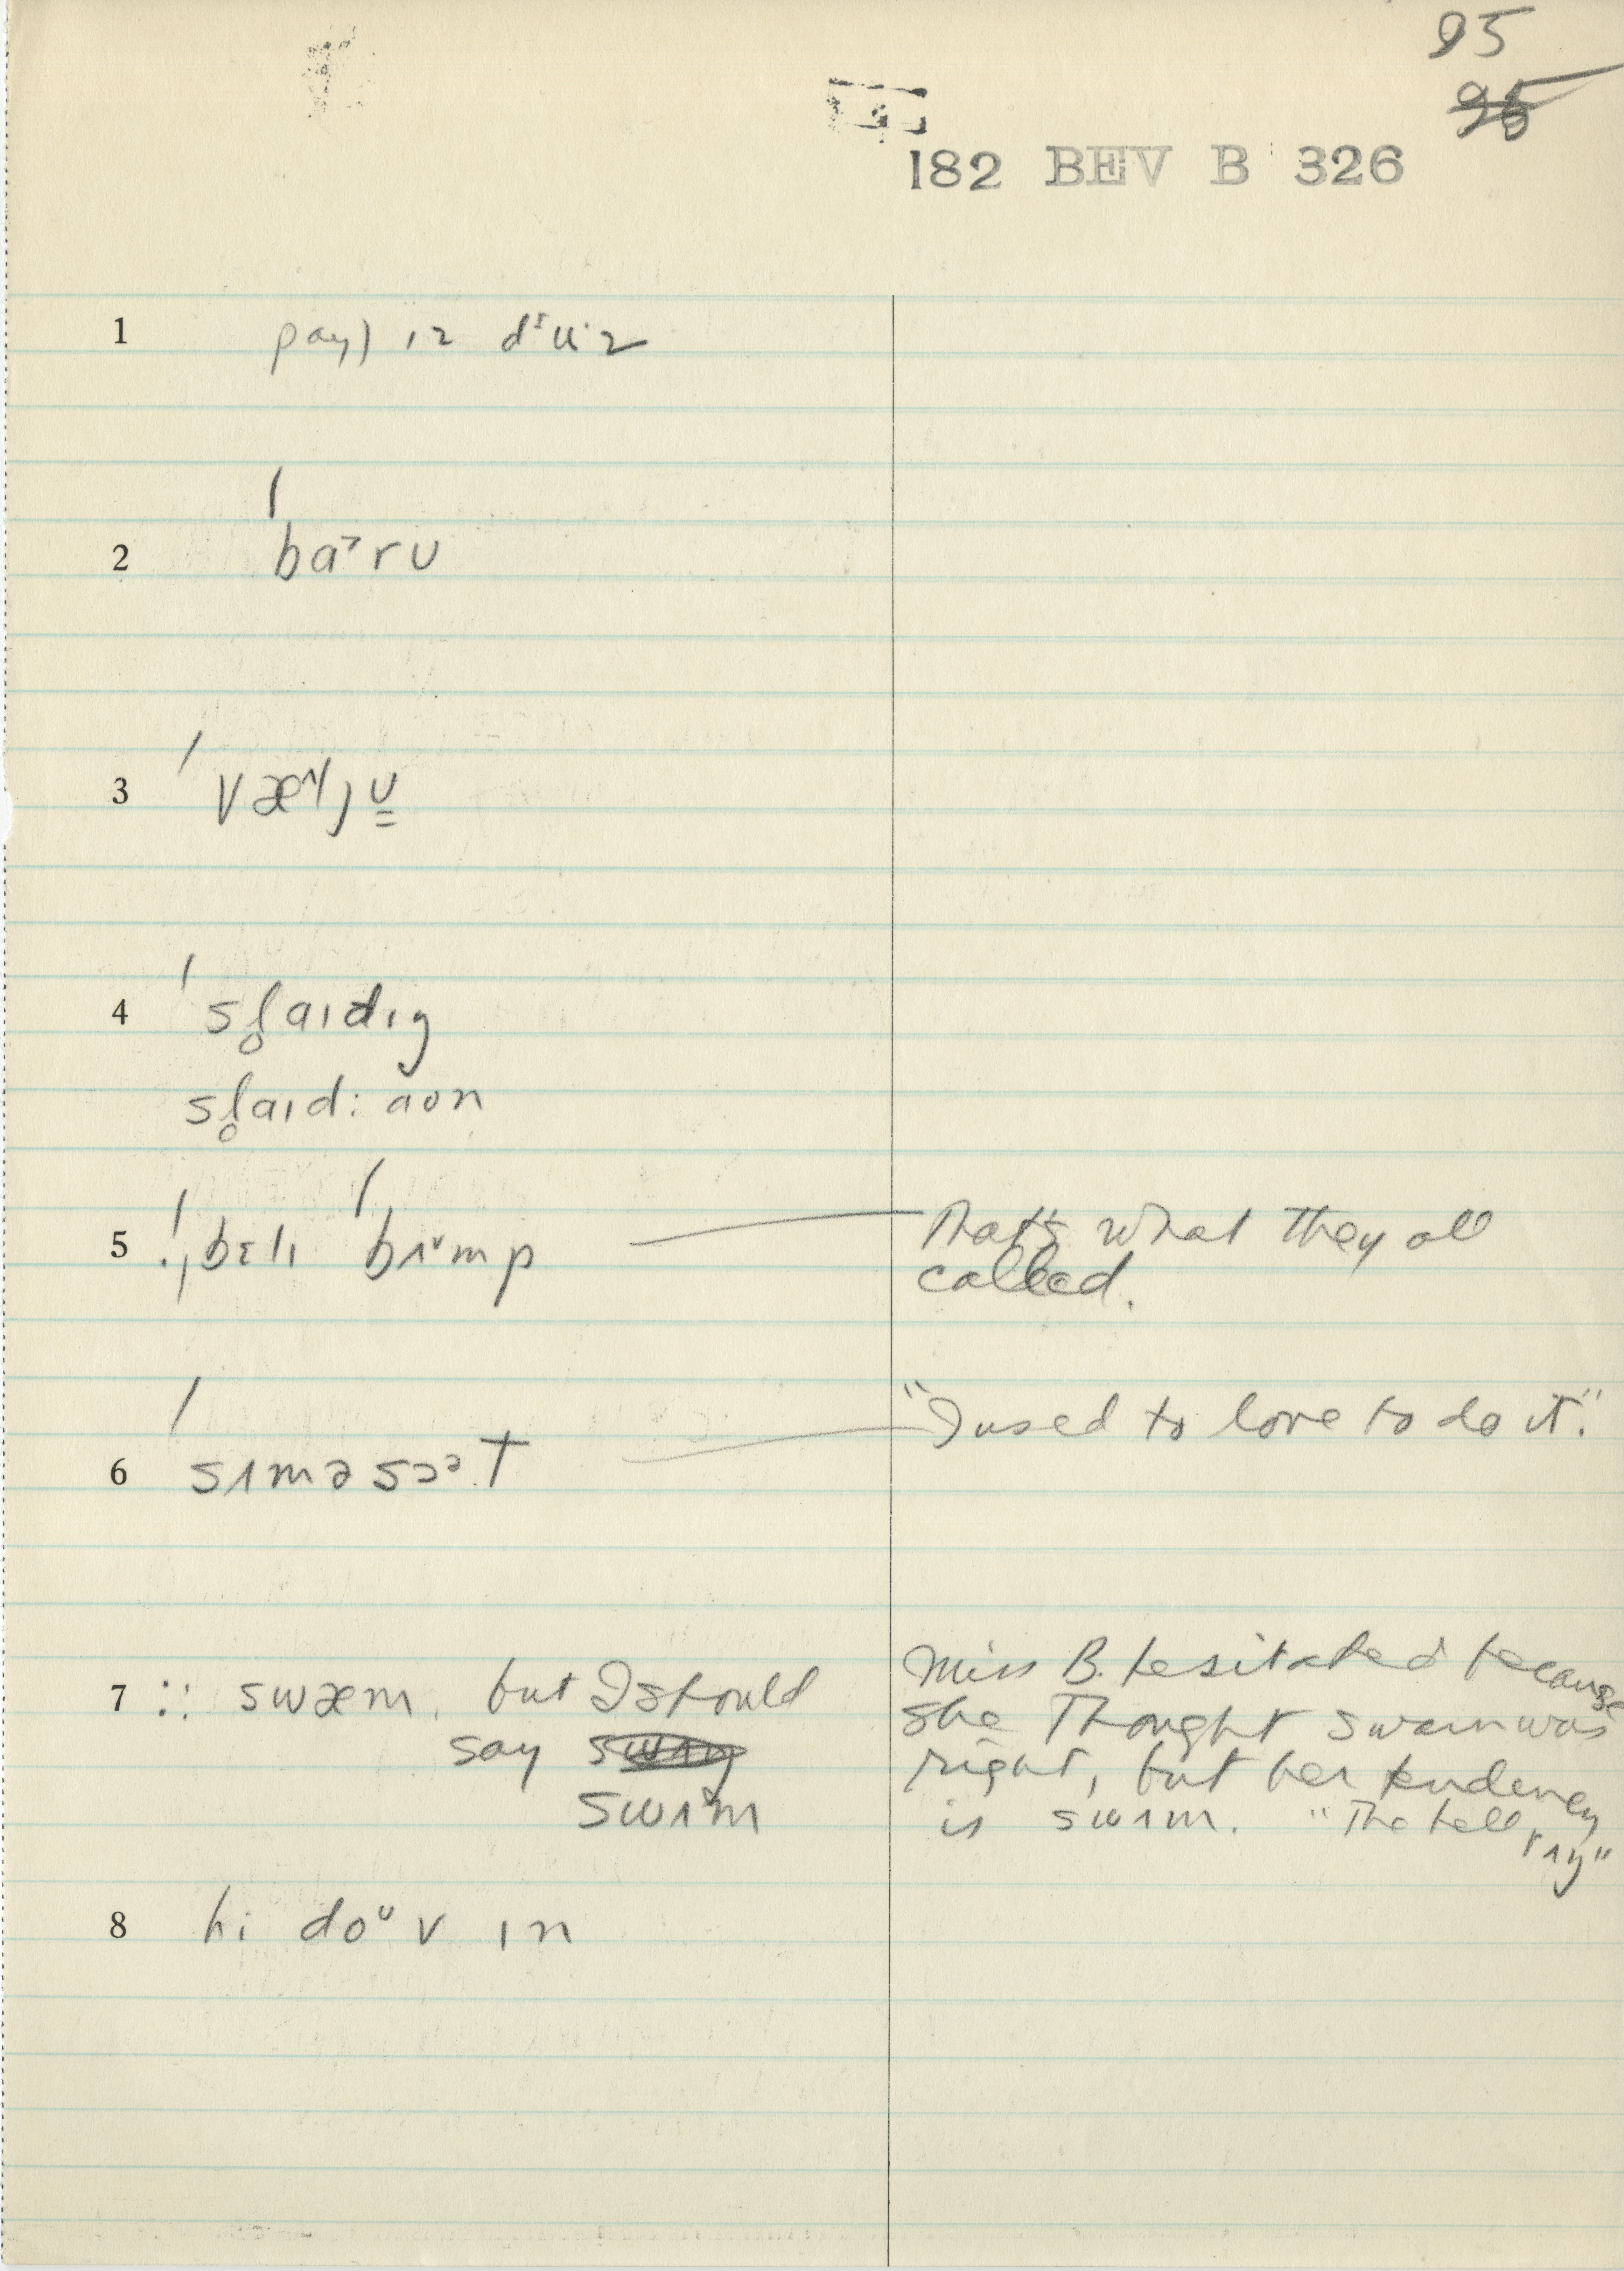 95
182 BEV B 326
1 ɪz dᶦu·z
2 ˈbaˀrʊ
3
4 ˈsl̥aɪdɪŋ
sl̥aɪd: aʊn
5 !ˌbɛlɪ ˈbʌᵛmp That's what they all
called.
6 ˈsʌməsɔᵊt "I used to love to do it."
7 :: swæm, but I should
say
swʌm
Miss B. hesitated because
she thought swam was
right, but her tendency
is swʌm. "The bell
rʌŋ"
8 hi doᶷv ɪn